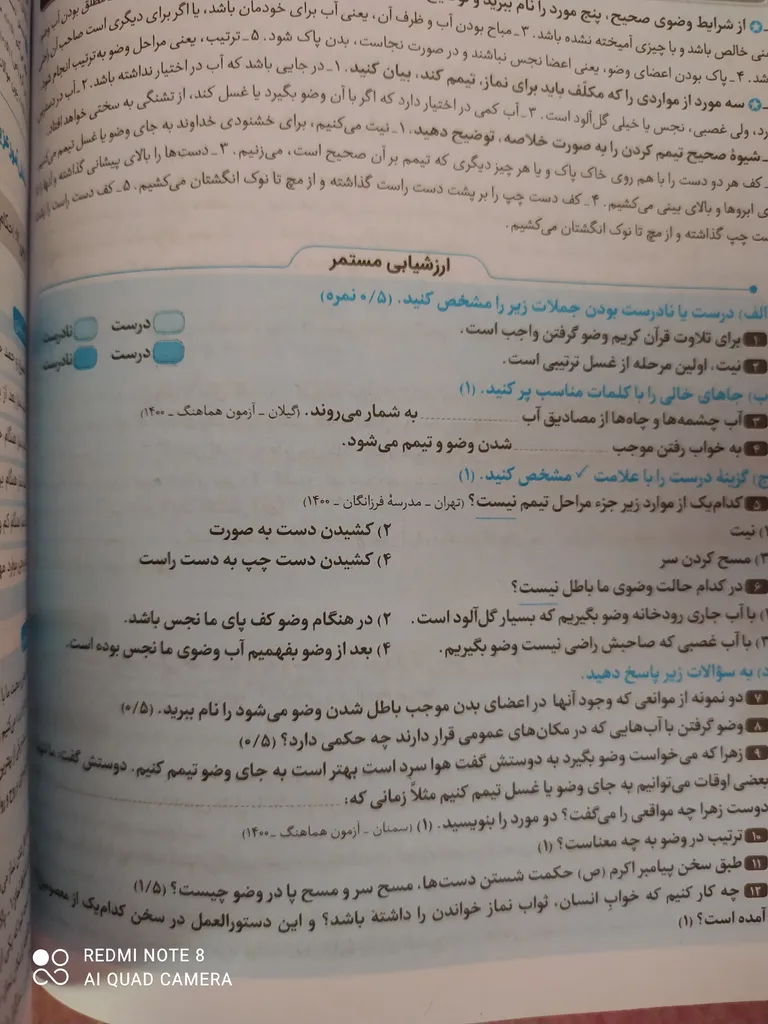 از شرایط وضوی صحیح، پنج مورد را نام ببرید و
خالص باشد و با چیزی آمیخته نشده باشد. ۳ـ مباح بودن آب و ظرف آن، یعنی آب برای خودمان باشد، یا اگر برای دیگری است صاحب آن راضی
۴ـ پاک بودن اعضای وضو، یعنی اعضا نجس نباشند و در صورت نجاست، بدن پاک شود. ۵ـ ترتیب، یعنی مراحل وضو به ترتیب انجام شود.
سه مورد از مواردی را که مکلّف باید برای نماز، تیمم کند، بیان کنید. ۱ـ در جایی باشد که آب در اختیار نداشته باشد. ۲ـ آب در دسترس
ولی غصبی، نجس یا خیلی گل‌آلود است. ۳ـ آب کمی در اختیار دارد که اگر با آن وضو بگیرد یا غسل کند، از تشنگی به سختی خواهد افتاد.
شیوهٔ صحیح تیمم کردن را به صورت خلاصه، توضیح دهید. ۱ـ نیت می‌کنیم، برای خشنودی خداوند به جای وضو یا غسل تیمم می‌کنیم
کف هر دو دست را با هم روی خاک پاک و یا هر چیز دیگری که تیمم بر آن صحیح است، می‌زنیم. ۳ـ دست‌ها را بالای پیشانی گذاشته و
ابروها و بالای بینی می‌کشیم. ۴ـ کف دست چپ را بر پشت دست راست گذاشته و از مچ تا نوک انگشتان می‌کشیم. ۵ـ کف دست راست را
چپ گذاشته و از مچ تا نوک انگشتان می‌کشیم.
ارزشیابی مستمر
الف) درست یا نادرست بودن جملات زیر را مشخص کنید. (۰/۵ نمره)
۱ برای تلاوت قرآن کریم وضو گرفتن واجب است. درست نادرست
۲ نیت، اولین مرحله از غسل ترتیبی است. درست نادرست
ب) جاهای خالی را با کلمات مناسب پر کنید. (۱)
۳ آب چشمه‌ها و چاه‌ها از مصادیق آب ............ به شمار می‌روند. (گیلان ـ آزمون هماهنگ ـ ۱۴۰۰)
۴ به خواب رفتن موجب ............ شدن وضو و تیمم می‌شود.
ج) گزینهٔ درست را با علامت ✓ مشخص کنید. (۱)
۵ کدام‌یک از موارد زیر جزء مراحل تیمم نیست؟ (تهران ـ مدرسهٔ فرزانگان ـ ۱۴۰۰)
۱) نیت ۲) کشیدن دست به صورت
۳) مسح کردن سر ۴) کشیدن دست چپ به دست راست
۶ در کدام حالت وضوی ما باطل نیست؟
۱) با آب جاری رودخانه وضو بگیریم که بسیار گل‌آلود است. ۲) در هنگام وضو کف پای ما نجس باشد.
۳) با آب غصبی که صاحبش راضی نیست وضو بگیریم. ۴) بعد از وضو بفهمیم آب وضوی ما نجس بوده است.
د) به سؤالات زیر پاسخ دهید.
۷ دو نمونه از موانعی که وجود آنها در اعضای بدن موجب باطل شدن وضو می‌شود را نام ببرید. (۰/۵)
۸ وضو گرفتن با آب‌هایی که در مکان‌های عمومی قرار دارند چه حکمی دارد؟ (۰/۵)
۹ زهرا که می‌خواست وضو بگیرد به دوستش گفت هوا سرد است بهتر است به جای وضو تیمم کنیم. دوستش گفت ما تنها
بعضی اوقات می‌توانیم به جای وضو یا غسل تیمم کنیم مثلاً زمانی که: ............
دوست زهرا چه مواقعی را می‌گفت؟ دو مورد را بنویسید. (۱) (سمنان ـ آزمون هماهنگ ـ ۱۴۰۰)
۱۰ ترتیب در وضو به چه معناست؟ (۱)
۱۱ طبق سخن پیامبر اکرم (ص) حکمت شستن دست‌ها، مسح سر و مسح پا در وضو چیست؟ (۱/۵)
۱۲ چه کار کنیم که خواب انسان، ثواب نماز خواندن را داشته باشد؟ و این دستورالعمل در سخن کدام‌یک از
آمده است؟ (۱)
REDMI NOTE 8
AI QUAD CAMERA